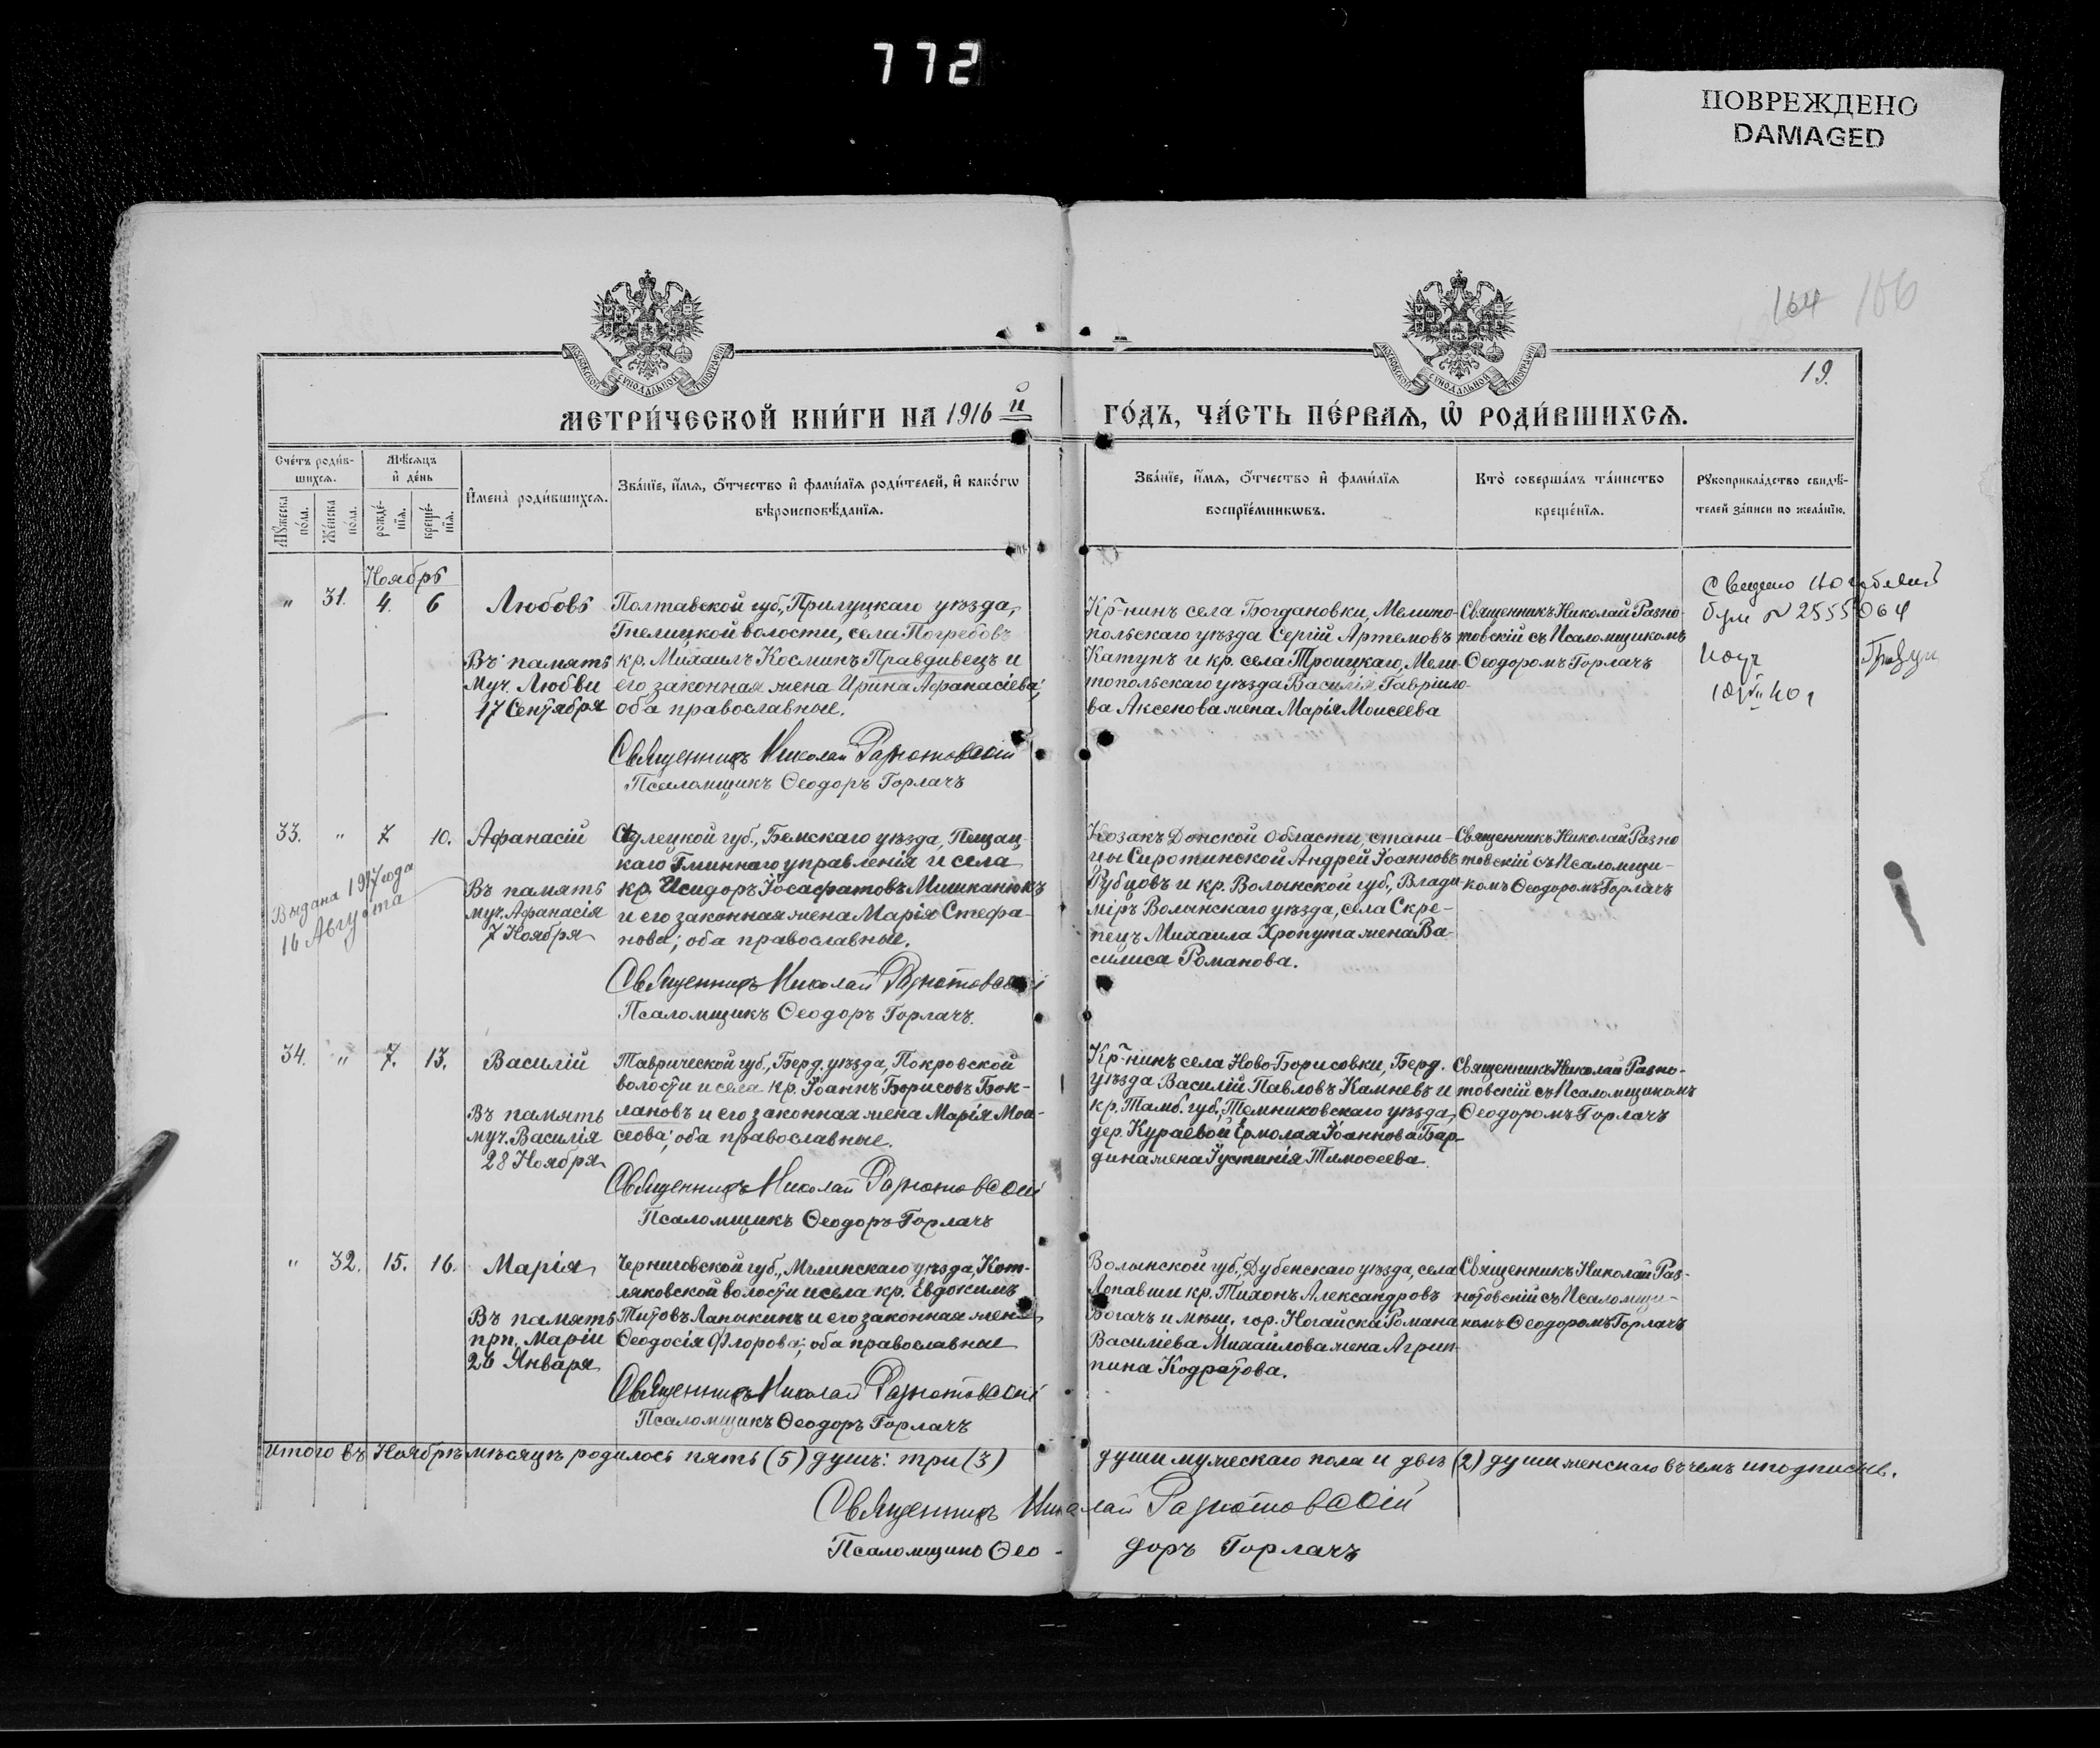 772
ПОВРЕЖДЕНО
DAMAGED
164 166
19.
МОСКОВСКОЙ СѴНОДАЛЬНОЙ ТИПОГРАФІИ
МОСКОВСКОЙ СѴНОДАЛЬНОЙ ТИПОГРАФІИ
МЕТРИ́ЧЕСКОЙ КНИ́ГИ НА 1916 й ГО́ДЪ, ЧА́СТЬ ПЕ́РВАѦ, Ѡ҆ РОДИ́ВШИХСѦ.
Сче́тъ роди́в-
шихсѧ.
Мꙋ́жеска
по́ла.
Же́нска
по́ла.
Мѣ́сѧцъ
и҆ де́нь
рожде́-
нїѧ.
креще́-
нїѧ.
И҆мена̀ роди́вшихсѧ.
Зва́нїе, и҆́мѧ, ѻ҆́тчество и҆ фами́лїѧ роди́телей, и҆ како́гѡ
вѣроисповѣ́данїѧ.
Зва́нїе, и҆́мѧ, ѻ҆́тчество и҆ фами́лїѧ
воспрїе́мникѡвъ.
Кто̀ соверша́лъ та́инство
креще́нїѧ.
Рꙋкоприкла́дство свидѣ́-
телей за́писи по жела́нїю.
Ноябрь
" 31. 4. 6 Любовь
Въ память
муч. Любви
17 Сентября
Полтавской губ., Прилуцкаго уѣзда,
Гнелицкой волости, села Погребовъ
кр. Михаилъ Косминъ Правдивецъ и
его законная жена Ирина Афанасіева;
оба православные.
Священникъ Николай Разнотовскій
Псаломщикъ Ѳеодоръ Горлачъ
Кр-нинъ села Богдановки, Мелито-
польскаго уѣзда Сергій Артемовъ
Катунъ и кр. села Троицкаго, Мели-
топольскаго уѣзда Василія Гавріило-
ва Аксенова жена Марія Моисеева
Священникъ Николай Разно-
товскій съ Псаломщикомъ
Ѳеодоромъ Горлачъ
N 2555064
33. " 7 10. Афанасій
Въ память
муч. Афанасія
7 Ноября
Выдана 1917 года
16 Августа
Сѣдлецкой губ., Бѣльскаго уѣзда, Пещац-
каго Гминнаго управленія и села
кр. Исидоръ Іосафатовъ Мишканюкъ
и его законная жена Марія Стефа-
нова; оба православные.
Священникъ Николай Разнотовскій
Псаломщикъ Ѳеодоръ Горлачъ.
Козакъ Донской области, стани-
цы Сиротинской Андрей Іоанновъ
Рубцовъ и кр. Волынской губ., Влади-
міръ Волынскаго уѣзда, села Скре-
пецъ Михаила Хропута жена Ва-
силиса Романова.
Священникъ Николай Разно
товскій съ Псаломщи-
комъ Ѳеодоромъ Горлачъ
34. " 7. 13. Василій
Въ память
муч. Василія
28 Ноября
Таврической губ., Берд. уѣзда, Покровской
волости и села кр. Іоаннъ Борисовъ Бок-
лановъ и его законная жена Марія Мои-
сеова; оба православные.
Священникъ Николай Разнотовскій
Псаломщикъ Ѳеодоръ Горлачъ
Кр-нинъ села Ново-Борисовки, Берд.
уѣзда Василій Павловъ Камневъ и
кр. Тамб. губ., Темниковскаго уѣзда,
дер. Кураевой Ермолая Іоаннова Бар-
дина жена Іустинія Тимоѳеева.
Священникъ Николай Разно-
товскій съ Псаломщикомъ
Ѳеодоромъ Горлачъ
" 32. 15. 16. Марія
Въ память
прп. Маріи
26 Января
Черниговской губ., Мглинскаго уѣзда, Кот-
ляковской волости и села кр. Евдокимъ
Титовъ Лапыкинъ и его законная жена
Ѳеодосія Флорова; оба православные
Священникъ Николай Разнотовскій
Псаломщикъ Ѳеодоръ Горлачъ
Волынской губ., Дубенскаго уѣзда, села
Лопавши кр. Тихонъ Александровъ
Богачъ и мѣщ. гор. Ногайска Романа
Василіева Михайлова жена Агрип-
пина Кодратова.
Священникъ Николай Раз-
нотовскій съ Псаломщи-
комъ Ѳеодоромъ Горлачъ
Итого въ Ноябрѣ мѣсяцѣ родилось пять (5) душъ: три (3) души мужескаго пола и двѣ (2) души женскаго въ чемъ и подписые.
Священникъ Николай Разнотовскій
Псаломщикъ Ѳео- доръ Горлачъ